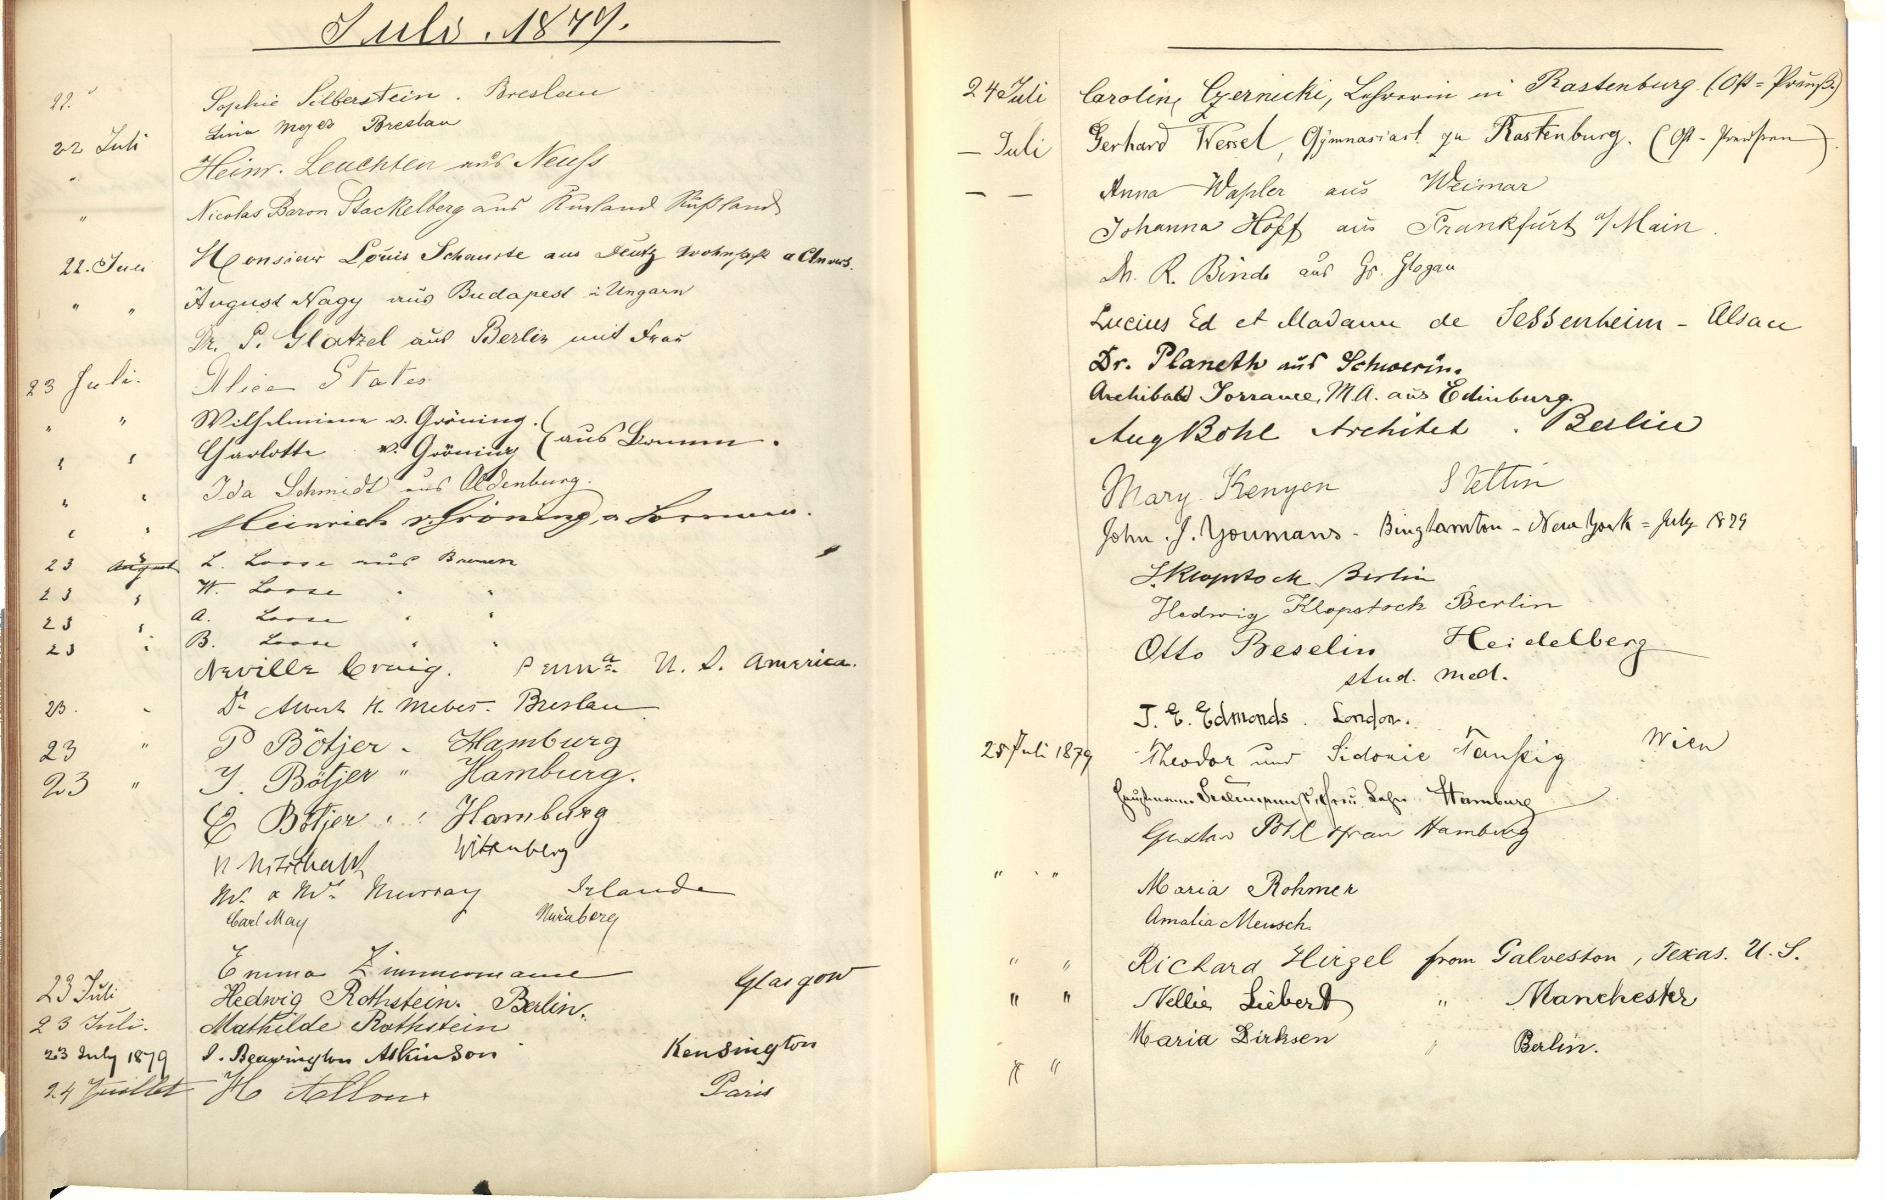 Juli. 1879.
22. " Sophie Silberstein. Breslau
Lina Meyer Breslau
22 Juli Heinr. Leuchten aus Neuss
" Nicolas Baron Stackelberg aus Kurland Rußland
22. Juli Monsieur Louis Schauste aus Deutz
" " August Nagy aus Budapest in Ungarn
Dr. P. Glatzel aus Berlin mit Frau
23 Juli. Alice States
" " Wilhelmine v. Gröning.
" " Charlotte v. Gröning } aus Bremen.
" " Ida Schmidt aus Oldenburg.
" " Heinrich v. Gröning, a Bremen.
23 August L. Loose aus Bremen
23 " W. Loose " "
23 " A. Loose " "
23 " B. Loose " "
Neville Craig. Penna U. S. America.
23. " Dr Albert H. Meber. Breslau
23 " P Bötjer. Hamburg
23 " J. Bötjer " Hamburg.
E Bötjer " " Hamburg
Wittenberg
Mr. & Mrs. Murray Irlande
Carl May Nürnberg
Emma Zimmermann Glasgow
23 Juli Hedwig Rothstein. Berlin.
23 Juli. Mathilde Rothstein
23 July 1879 Atkinson Kensington
24 Juillet H Paris
24 Juli Caroline Czernicki, Lehrerin in Rastenburg (Ost=Preuß.)
— Juli Gerhard Wessel, Gymnasiast zu Rastenburg. (Ost-Preußen).
— — Anna Wapler aus Weimar
Johanna Hoff aus Frankfurt a/Main.
M. R. Binde aus Gr. Glogau
Lucius Ed et Madame de Sessenheim - Alsace
Dr. Planeth aus Schwerin.
Archibald Torrance, M.A. aus Edinburg.
Aug Bohl Architet. Berlin
Mary Kenyon Stettin
John. J. Youmans - Binghamton - New York = July 1879
S. Klopstock Berlin
Hedwig Klopstock Berlin
Otto Beselin Heidelberg
stud. med.
J. E. Edmonds. London.
25 Juli 1879 Theodor und Sidonie Taußig Wien
Hauptmann Hamburg
Gustav Pohl & Frau Hamburg
" " " Maria Rohmer
Amalia Mensch.
" " Richard Hirzel from Galveston, Texas. U. S.
" " Nellie Liebert " Manchester
Maria Dirksen " Berlin.
" "